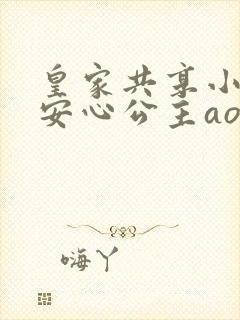 皇家共享小
安心公主ao
嗨丫